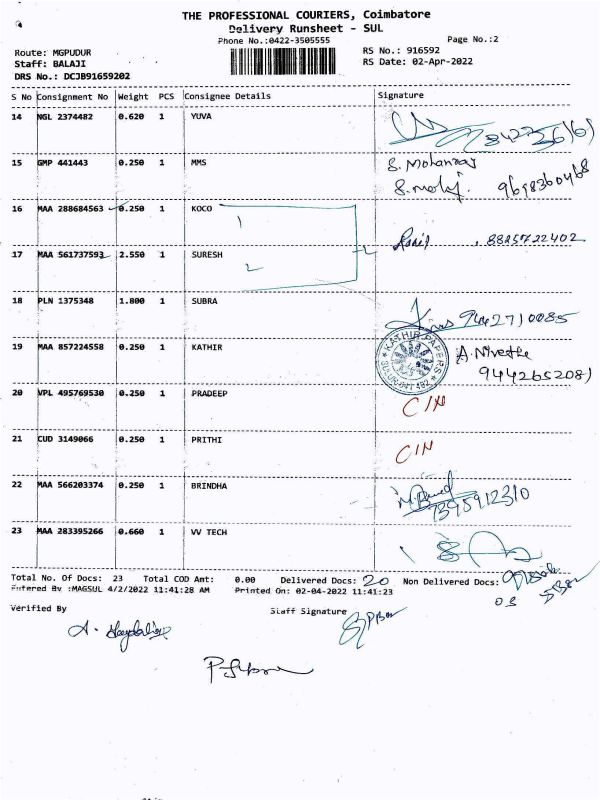 THE PROFESSIONAL COURIERS, Coimbatore
Delivery Runsheet - SUL
Phone No.:0422-3505555
Page No.:2
Route: MGPUDUR
RS No.: 916592
Staff: BALAJI
RS Date: 02-Apr-2022
DRS No.: DCJB91659202
S No Consignment No Weight PCS Consignee Details Signature
14 NGL 2374482 0.620 1 YUVA
15 GMP 441443 0.250 1 MMS S. Mohanraj
9698360468
16 MAA 288684563 0.250 1 KOCO
1
8825722402
17 MAA 561737593 2.550 1 SURESH
2
18 PLN 1375348 1.800 1 SUBRA 9442710085
19 MAA 857224558 0.250 1 KATHIR KATHIR PAPERS A. Nivetha
9442652081
20 VPL 495769530 0.250 1 PRADEEP CIN
21 CUD 3149066 0.250 1 PRITHI CIN
22 MAA 566203374 0.250 1 BRINDHA
7395912310
23 MAA 283395266 0.660 1 VV TECH
Total No. Of Docs: 23 Total COD Amt: 0.00 Delivered Docs: 20 Non Delivered Docs:
03
Entered By :MAGSUL 4/2/2022 11:41:28 AM Printed On: 02-04-2022 11:41:23
Verified By Staff Signature